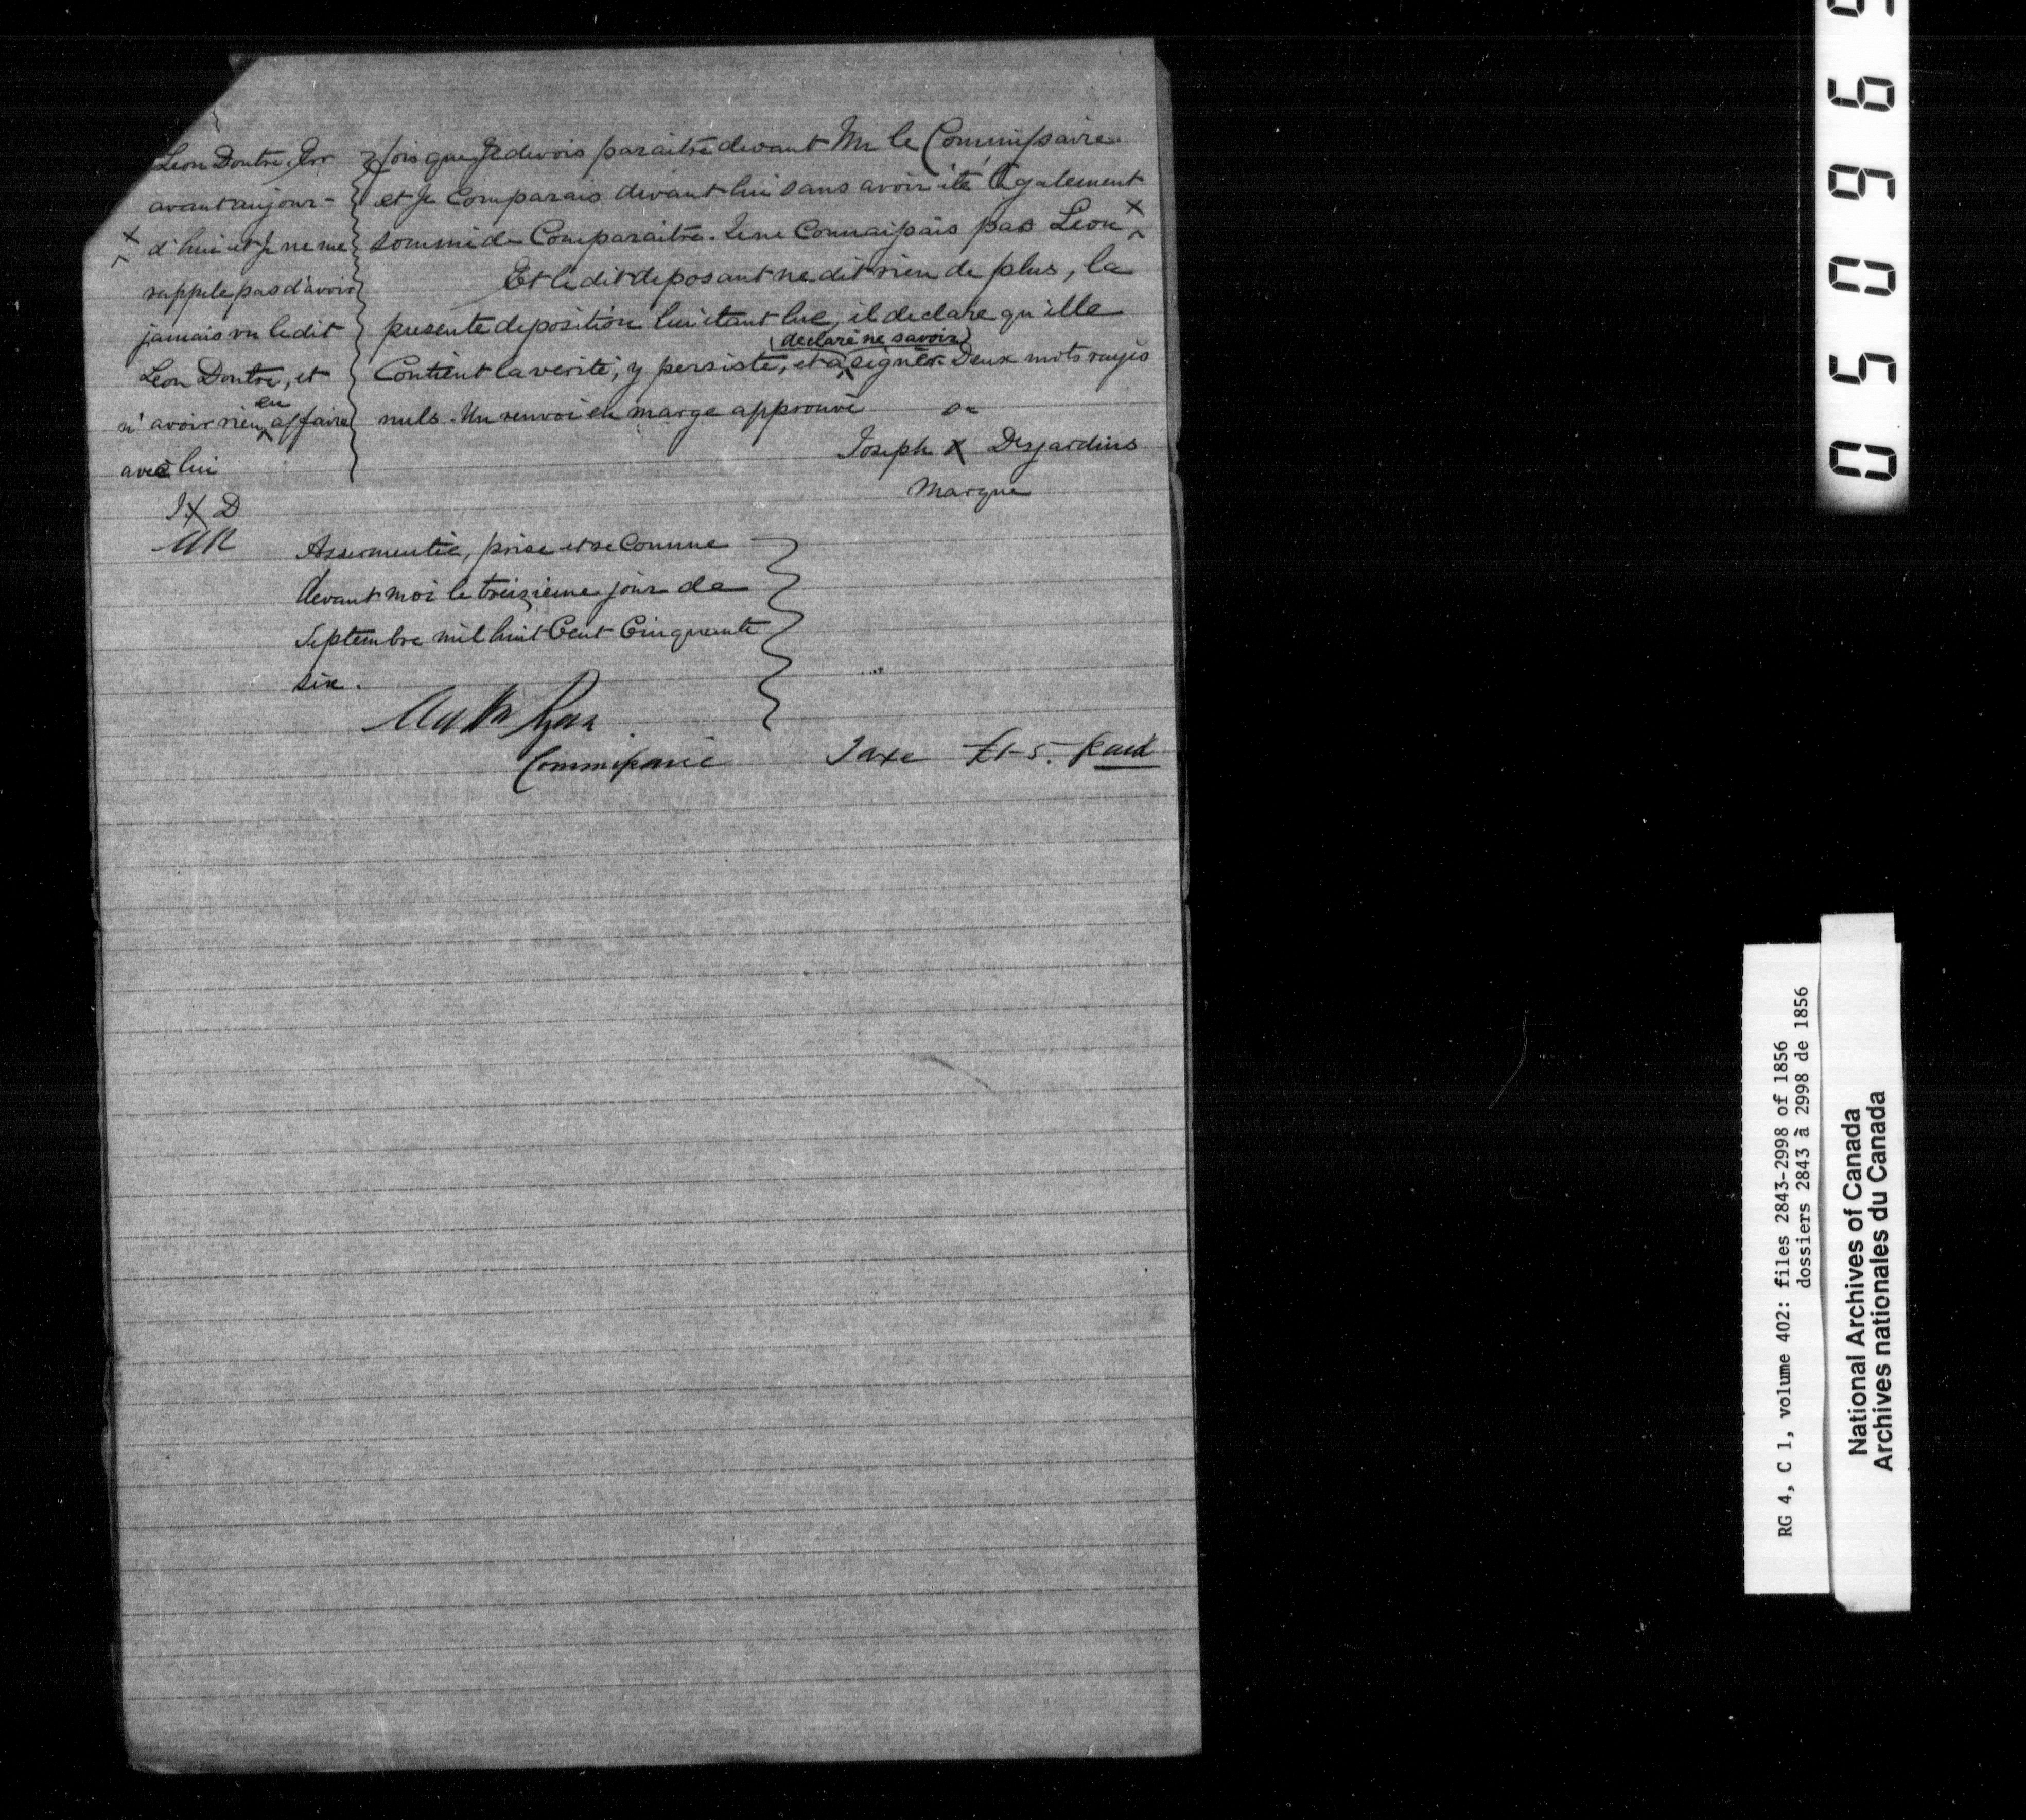 Leon Doutre, Ecr
avant aujour-
x d'hui et Je ne me
rappele pas d'avoir
jamais vu le dit
Leon Doutre, et
n'avoir rien eu affaire
avec lui
J x D
AR
fois que Je devois paraitre devant Mr le Commissaire
et Je Comparais devant lui sans avoir été légalement
sommé de Comparaitre. Je ne Connaissais pas Leon x
Et le dit deposant ne dit rien de plus, la
presente deposition lui etant lue, il declare qu'elle
Contient la verité, y persiste, et a declaré ne savoir signer. Deux mots rayés
nuls. Un renvoi en marge approuvé
sa
Joseph x Desjardins
Marque
Assermentée, prise et reconnue
devant moi le treizieme jour de
Septembre mil huit Cent Cinquante
six.
Commissaire
Taxe £1-5. Paid
0 5 0 9 6 9
RG 4, C 1, volume 402: files 2843-2998 of 1856
dossiers 2843 à 2998 de 1856
National Archives of Canada
Archives nationales du Canada